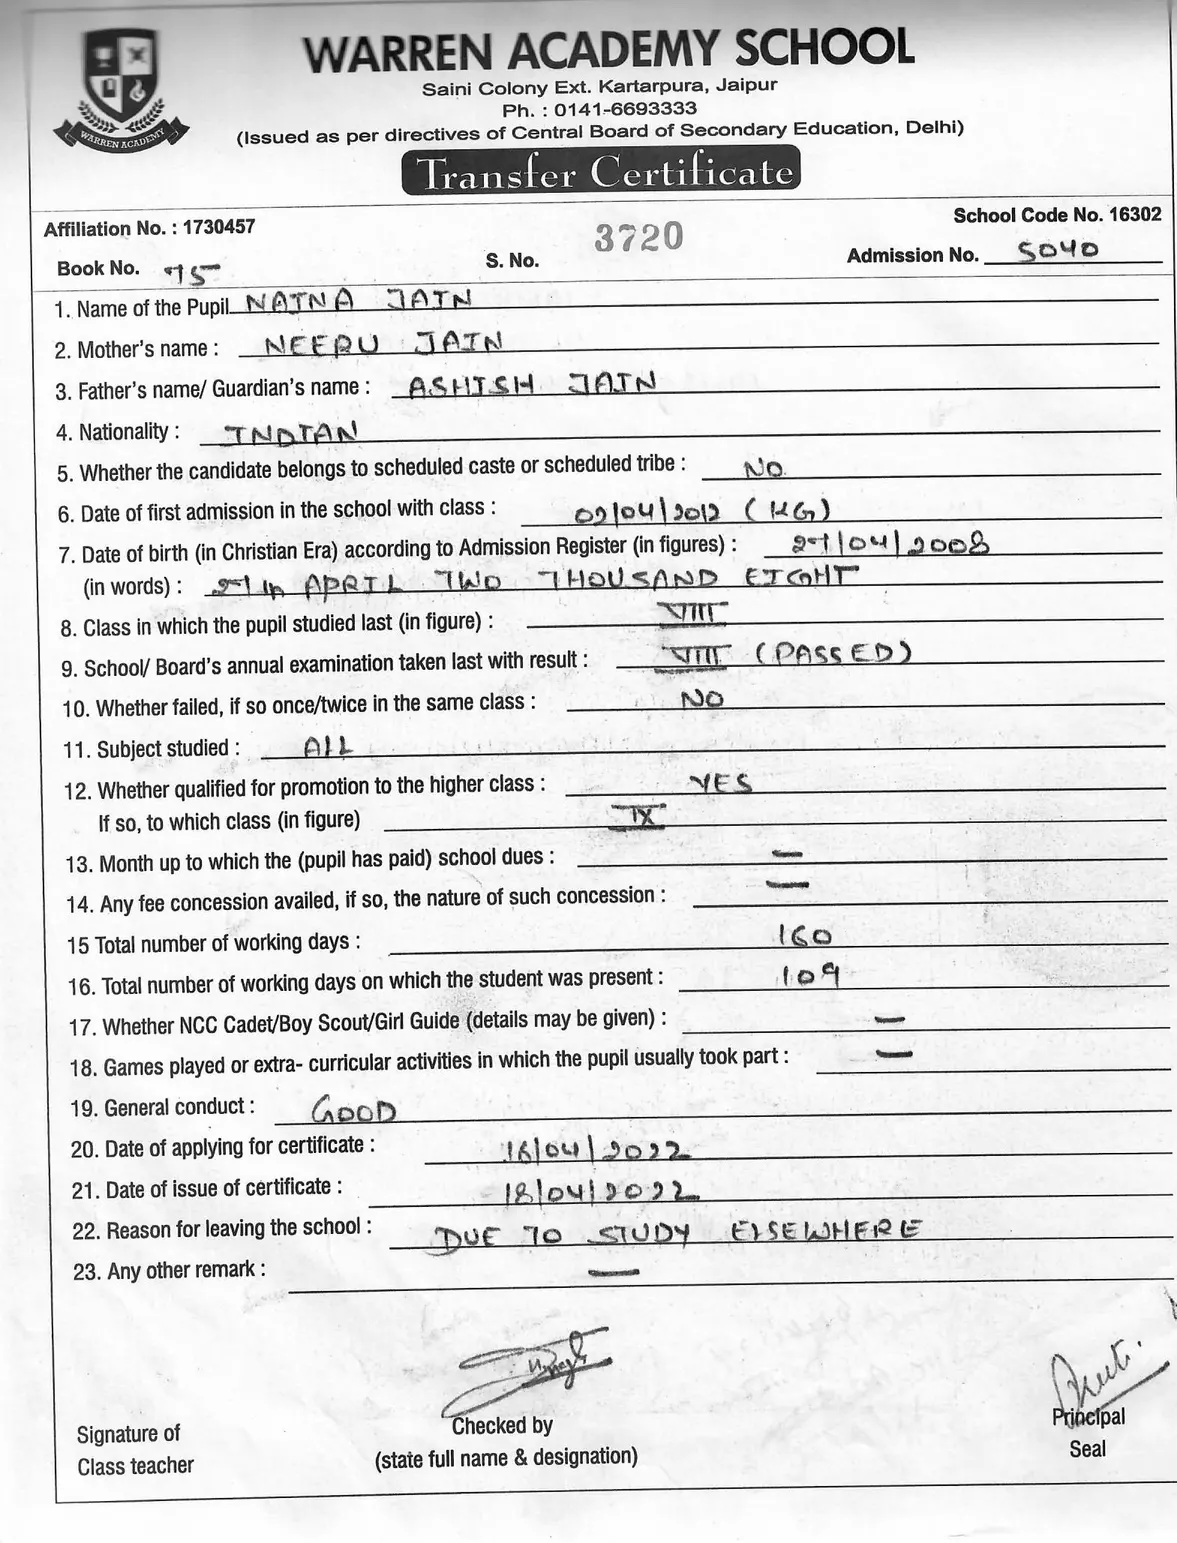 WARREN ACADEMY SCHOOL
Saini Colony Ext. Kartarpura, Jaipur
Ph. : 0141-6693333
(Issued as per directives of Central Board of Secondary Education, Delhi)
WARREN ACADEMY
Transfer Certificate
Affiliation No. : 1730457 School Code No. 16302
Book No. 75 S. No. 3720 Admission No. 5040
1. Name of the Pupil NAINA JAIN
2. Mother's name : NEERU JAIN
3. Father's name/ Guardian's name : ASHISH JAIN
4. Nationality : INDIAN
5. Whether the candidate belongs to scheduled caste or scheduled tribe : NO
6. Date of first admission in the school with class : 02/04/2012 (KG)
7. Date of birth (in Christian Era) according to Admission Register (in figures) : 27/04/2008
(in words) : 27th APRIL TWO THOUSAND EIGHT
8. Class in which the pupil studied last (in figure) : VIII
9. School/ Board's annual examination taken last with result : VIII (PASSED)
10. Whether failed, if so once/twice in the same class : NO
11. Subject studied : All
12. Whether qualified for promotion to the higher class : YES
If so, to which class (in figure) IX
13. Month up to which the (pupil has paid) school dues : —
14. Any fee concession availed, if so, the nature of such concession : —
15 Total number of working days : 160
16. Total number of working days on which the student was present : 109
17. Whether NCC Cadet/Boy Scout/Girl Guide (details may be given) : —
18. Games played or extra- curricular activities in which the pupil usually took part : —
19. General conduct : GOOD
20. Date of applying for certificate : 16/04/2022
21. Date of issue of certificate : 18/04/2022
22. Reason for leaving the school : DUE TO STUDY ELSEWHERE
23. Any other remark : —
Signature of Checked by Principal
Class teacher (state full name & designation) Seal